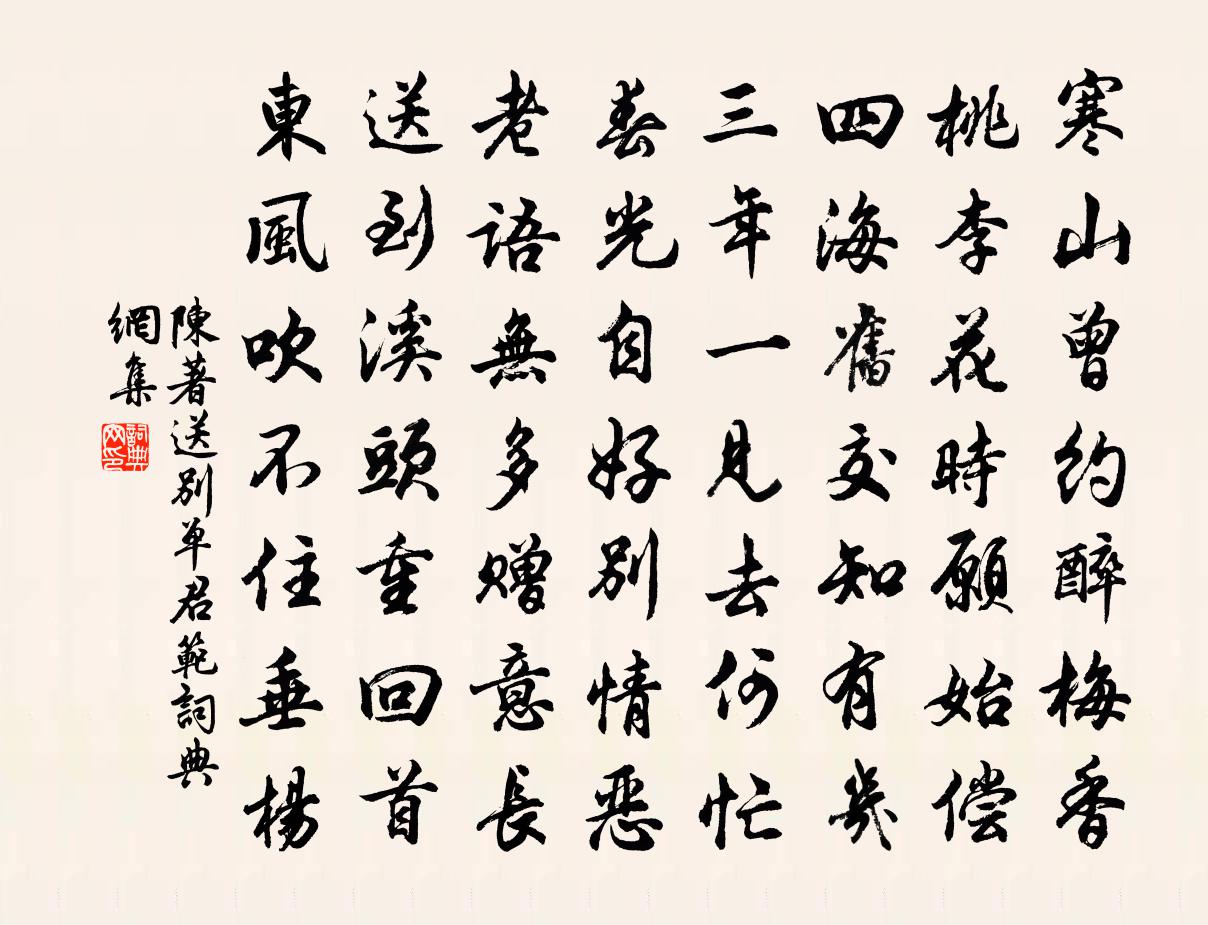 寒山曾約醉梅香
桃李花時願始償
四海舊交知有幾
三年一見去何忙
春光自好別情惡
老語無多贈意長
送到溪頭重回首
東風吹不住垂楊
陳著送別單君範詞典
網集
詞典網印